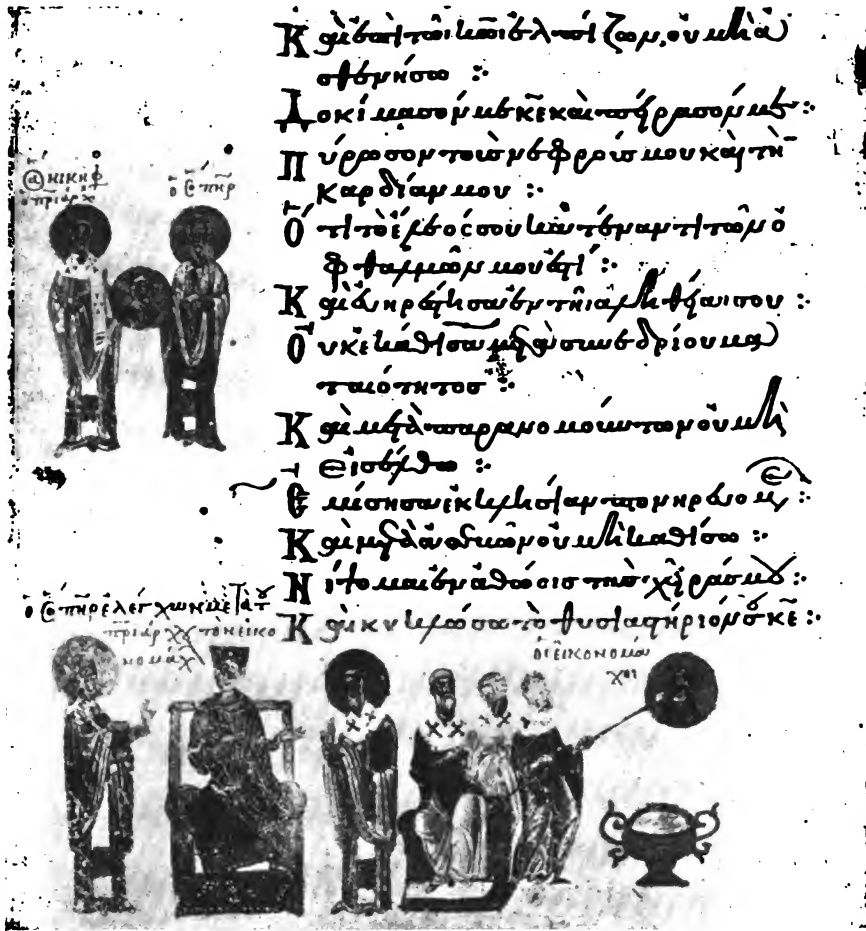 Καὶ ἐπὶ τῶι κ̅ω̅ι ἐλπίζων, οὐ μὴ ἀ
σθενήσω :·
Δοκίμασόν με κ̅ε̅ καὶ πείρασόν με :·
Πύρωσον τοὺς νεφρούς μου καὶ τὴν
καρδίαν μου :·
Ὅτι τὸ ἔλεός σου κατέναντι τῶν ὀ
φθαλμῶν μου ἐστί :·
Καὶ εὐηρέστησα ἐν τῆι ἀληθείαι σου :·
Οὐκ ἐκάθισα μετὰ συνεδρίου μα
ταιότητος :·
Καὶ μετὰ παρανομούντων οὐ μὴ
εἰσέλθω :·
Ἐμίσησα ἐκκλησίαν πονηρευομε :·
Καὶ μετὰ
οὐ μὴ καθίσω :·
Νίψομαι ἐν ἀθώοις τὰς χεῖράς μου :·
Καὶ κυκλώσω τὸ θυσιαστήριόν σου κ̅ε̅ :·
ΝΙΚΗΦ
ὁ πριάρχ
ὁ πηρ
ὁ πηρ ἐλέγχων μετὰ τοῦ
πριάρχου τὸν εἰκο
νομάχ
οἱ εἰκονομά
χοι